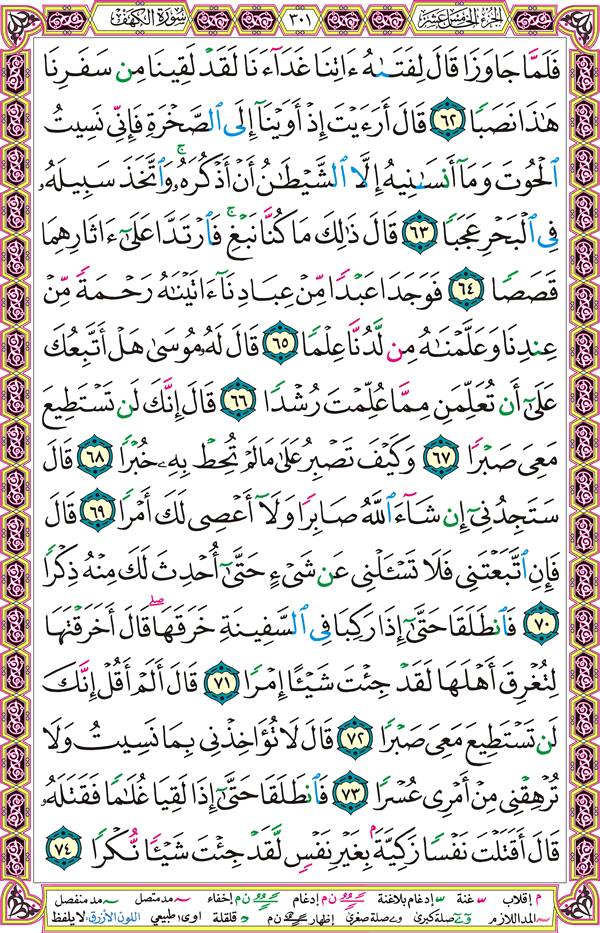 الجزء الخامس عشر ٣٠١ سورة الكهف
فَلَمَّا جَاوَزَا قَالَ لِفَتَىٰهُ ءَاتِنَا غَدَآءَنَا لَقَدۡ لَقِينَا مِن سَفَرِنَا
هَٰذَا نَصَبٗا ٦٢ قَالَ أَرَءَيۡتَ إِذۡ أَوَيۡنَآ إِلَى ٱلصَّخۡرَةِ فَإِنِّي نَسِيتُ
ٱلۡحُوتَ وَمَآ أَنسَىٰنِيهُ إِلَّا ٱلشَّيۡطَٰنُ أَنۡ أَذۡكُرَهُۥۚ وَٱتَّخَذَ سَبِيلَهُۥ
فِي ٱلۡبَحۡرِ عَجَبٗا ٦٣ قَالَ ذَٰلِكَ مَا كُنَّا نَبۡغِۚ فَٱرۡتَدَّا عَلَىٰٓ ءَاثَارِهِمَا
قَصَصٗا ٦٤ فَوَجَدَا عَبۡدٗا مِّنۡ عِبَادِنَآ ءَاتَيۡنَٰهُ رَحۡمَةٗ مِّنۡ
عِندِنَا وَعَلَّمۡنَٰهُ مِن لَّدُنَّا عِلۡمٗا ٦٥ قَالَ لَهُۥ مُوسَىٰ هَلۡ أَتَّبِعُكَ
عَلَىٰٓ أَن تُعَلِّمَنِ مِمَّا عُلِّمۡتَ رُشۡدٗا ٦٦ قَالَ إِنَّكَ لَن تَسۡتَطِيعَ
مَعِيَ صَبۡرٗا ٦٧ وَكَيۡفَ تَصۡبِرُ عَلَىٰ مَا لَمۡ تُحِطۡ بِهِۦ خُبۡرٗا ٦٨ قَالَ
سَتَجِدُنِيٓ إِن شَآءَ ٱللَّهُ صَابِرٗا وَلَآ أَعۡصِي لَكَ أَمۡرٗا ٦٩ قَالَ
فَإِنِ ٱتَّبَعۡتَنِي فَلَا تَسۡـَٔلۡنِي عَن شَيۡءٍ حَتَّىٰٓ أُحۡدِثَ لَكَ مِنۡهُ ذِكۡرٗا
٧٠ فَٱنطَلَقَا حَتَّىٰٓ إِذَا رَكِبَا فِي ٱلسَّفِينَةِ خَرَقَهَاۖ قَالَ أَخَرَقۡتَهَا
لِتُغۡرِقَ أَهۡلَهَا لَقَدۡ جِئۡتَ شَيۡـًٔا إِمۡرٗا ٧١ قَالَ أَلَمۡ أَقُلۡ إِنَّكَ
لَن تَسۡتَطِيعَ مَعِيَ صَبۡرٗا ٧٢ قَالَ لَا تُؤَاخِذۡنِي بِمَا نَسِيتُ وَلَا
تُرۡهِقۡنِي مِنۡ أَمۡرِي عُسۡرٗا ٧٣ فَٱنطَلَقَا حَتَّىٰٓ إِذَا لَقِيَا غُلَٰمٗا فَقَتَلَهُۥ
قَالَ أَقَتَلۡتَ نَفۡسٗا زَكِيَّةَۢ بِغَيۡرِ نَفۡسٖ لَّقَدۡ جِئۡتَ شَيۡـٔٗا نُّكۡرٗا ٧٤
م إقلاب غنة إدغام بلاغنة ن م إدغام ن م إخفاء مد متصل مد منفصل
المد اللازم صلة كبرى صلة صغرى إظهار ن م قلقلة اوى طبيعي اللون الأزرق: لا يلفظ